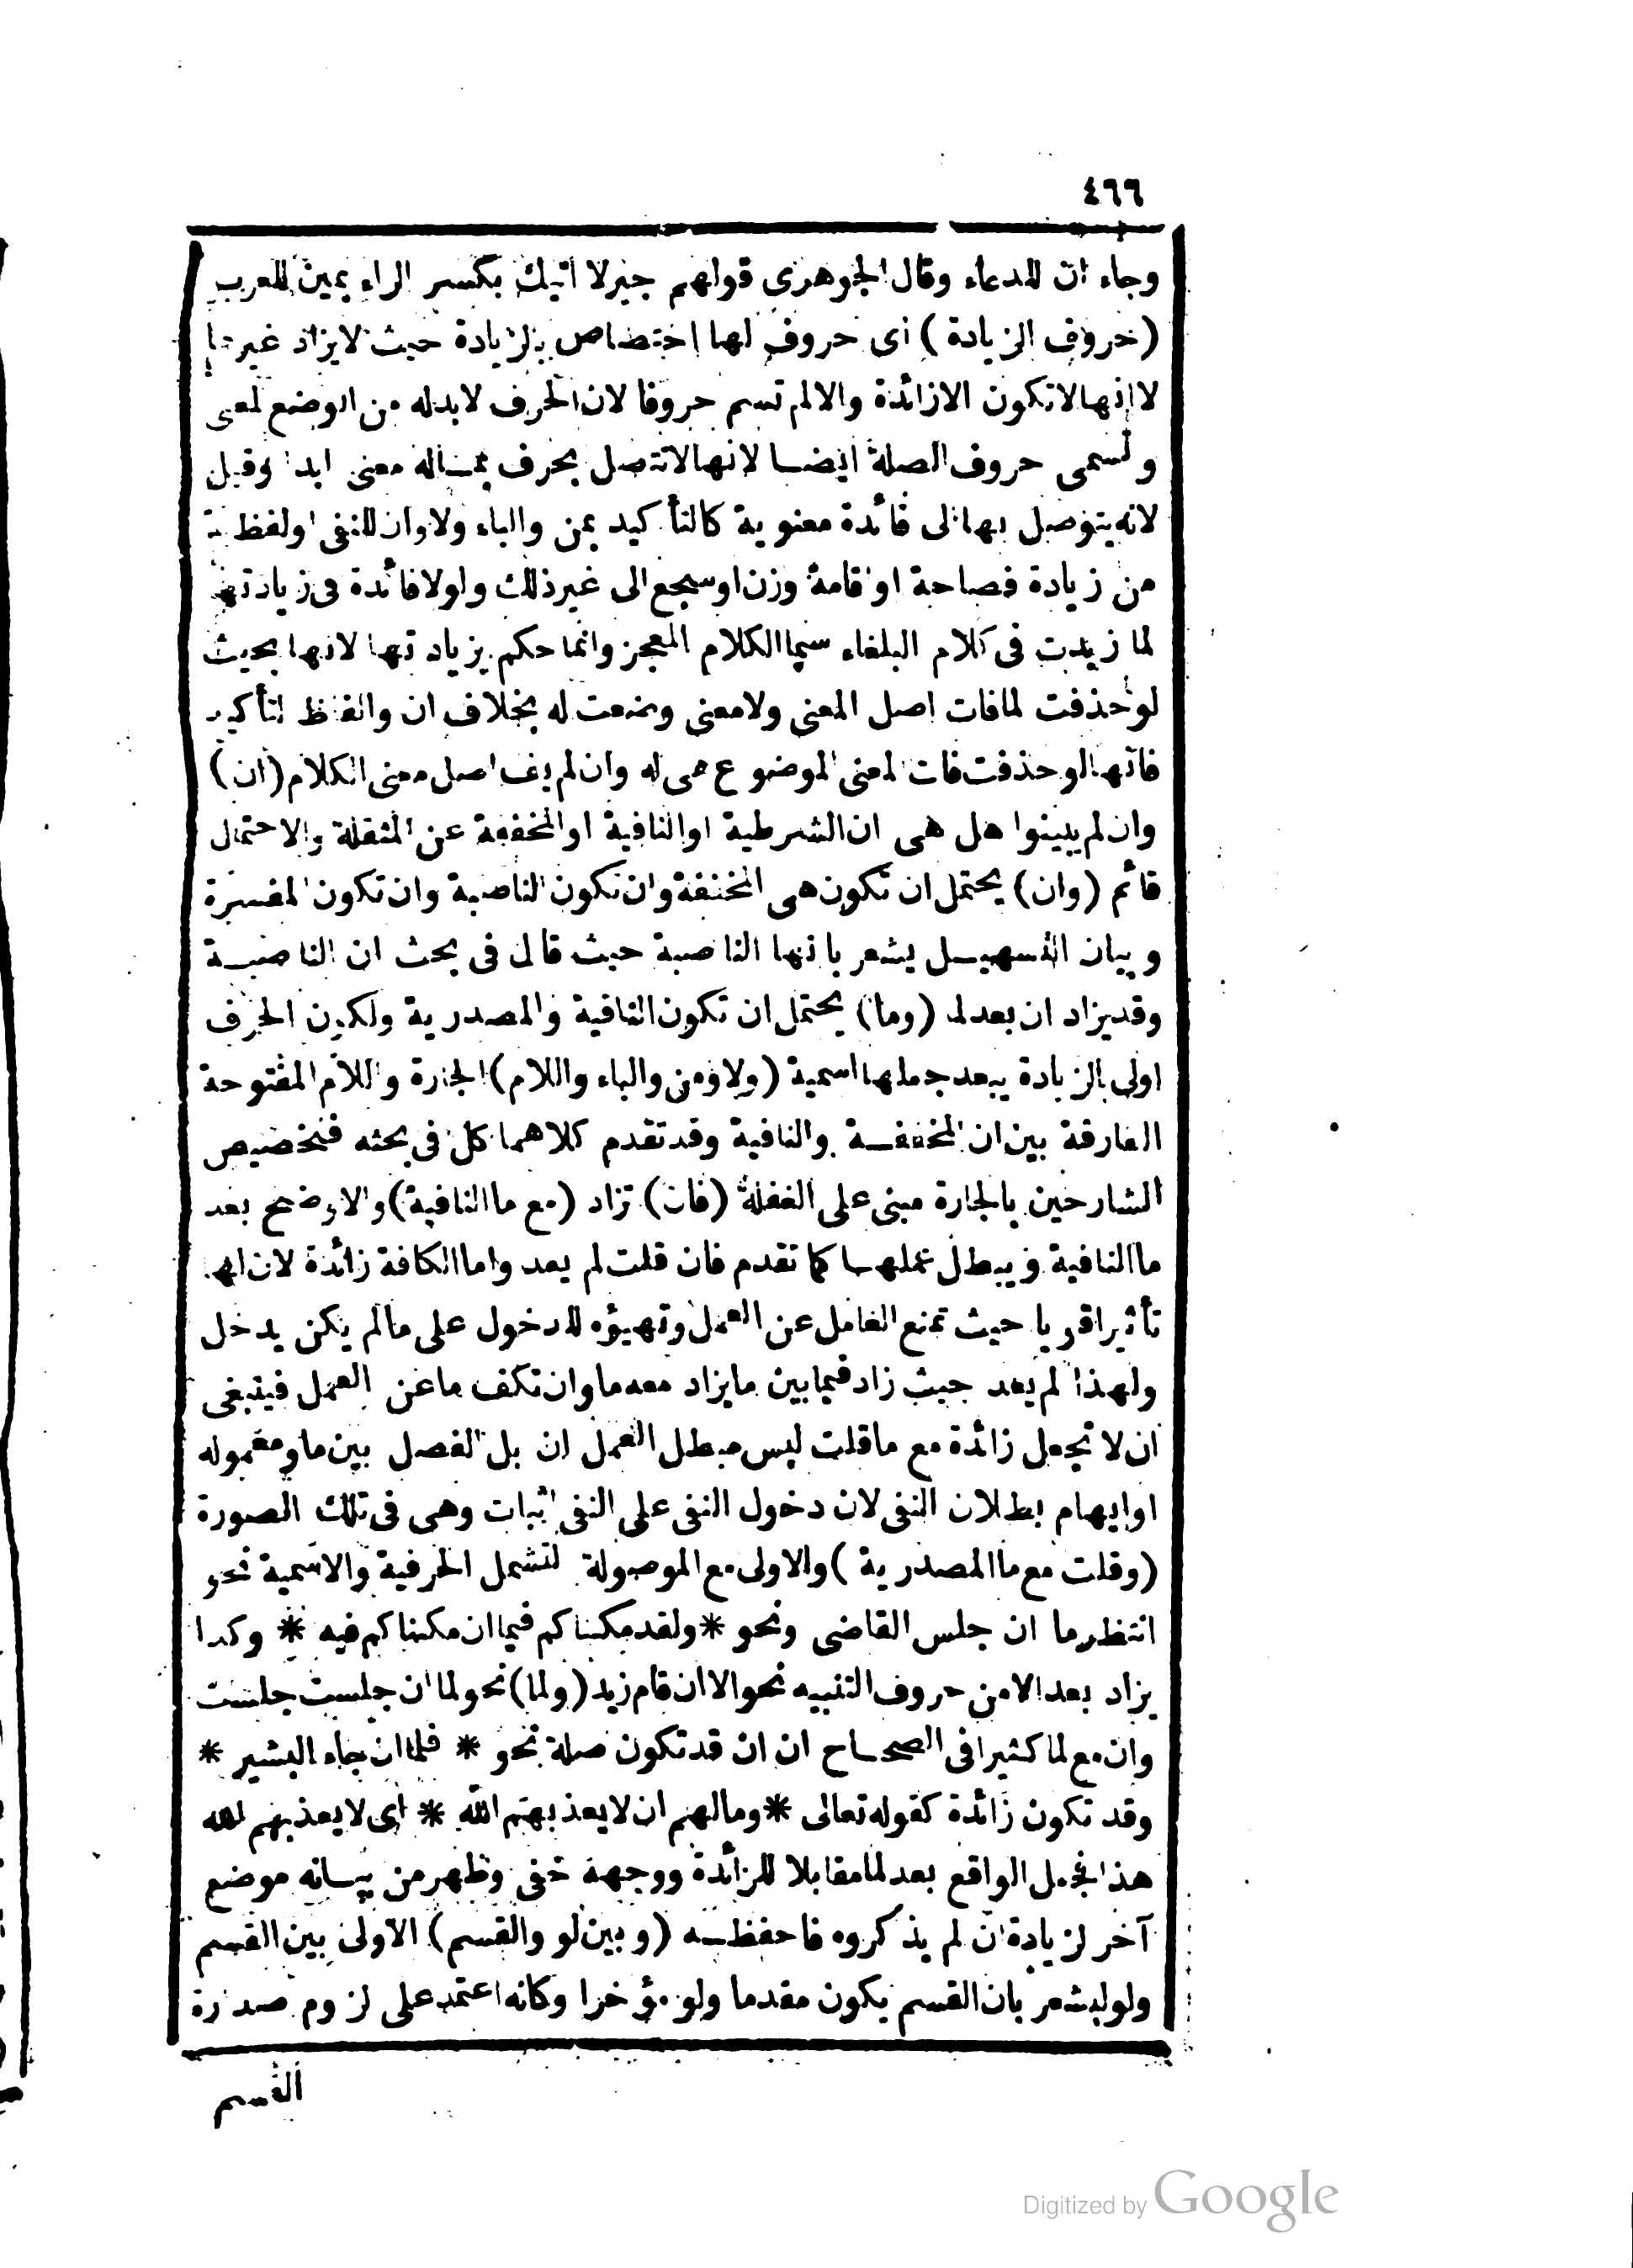 ٤٦٦
وجاء ان للدعاء وقال الجوهرى قولهم جير لا اتيك بكسر الراء يمين للعرب
(حروف الزيادة) اى حروف لها اختصاص بالزيادة حيث لا يزاد غيرها
لا انها لا تكون الا زائدة والا لم تسم حروفا لان الحرف لا بدله من الوضع لمعنى
وتسمى حروف الصلة ايضا لانها لا تتصل بحرف مماله معنى ابدا وقيل
لانه يتوصل بها الى فائدة معنوية كالتأكيد بمن والباء ولا وان للنفى او لفظية
من زيادة فصاحة او اقامة وزن او سجع الى غير ذلك ولولا فائدة فى زيادتها
لما زيدت فى كلام البلغاء سيما الكلام المعجز وانما حكم بزيادتها لانها بحيث
لو حذفت لما فات اصل المعنى ولا معنى وضعت له بخلاف ان والفاظ التأكيد
فانها لو حذفت فات المعنى الموضوع هى له وان لم يفت اصل معنى الكلام (ان)
وان لم يبينوا هل هى ان الشرطية او النافية او المخففة عن المثقلة والاحتمال
قائم (وان) يحتمل ان تكون هى المخففة وان تكون الناصبة وان تكون المفسرة
وبيان التسهيل يشعر بانها الناصبة حيث قال فى بحث ان الناصبة
وقد يزاد ان بعد لما (وما) يحتمل ان تكون النافية والمصدرية ولكون الحرف
اولى بالزيادة يبعد جعلها اسمية (ولا ومن والباء واللام) الجارة واللام المفتوحة
الفارقة بين ان المخففة والنافية وقد تقدم كلاهما كل فى بحثه فتخصيص
الشارحين بالجارة مبنى على الغفلة (فان) تزاد (مع ما النافية) والاوضح بعد
ما النافية ويبطل عملها كما تقدم فان قلت لم يعد واما الكافة زائدة لان لها
تأثيرا قويا حيث تمنع العامل عن العمل وتهيؤه للدخول على ما لم يكن يدخل
ولهذا لم يعد حيث زاد فيما بين ما يزاد معه ما وان تكف ما عن العمل فينبغى
ان لا تجعل زائدة مع ما قلت ليس مبطل العمل ان بل الفصل بين ما ومعموله
او ايهام بطلان النفى لان دخول النفى على النفى اثبات وهى فى تلك الصورة
(وقلت مع ما المصدرية) والاولى مع الموصولة لتشمل الحرفية والاسمية نحو
انتظر ما ان جلس القاضى ونحو * ولقد مكناكم فيما ان مكناكم فيه * وكذا
يزاد بعد الا من حروف التنبيه نحو الا ان قام زيد (ولما) نحو لما ان جلست جلست
وان مع لما كثيرا فى الصحاح ان ان قد تكون صلة نحو * فلما ان جاء البشير *
وقد تكون زائدة كقوله تعالى * وما لهم ان لا يعذبهم الله * اى لا يعذبهم الله
هذا فجعل الواقع بعد لما مقابلا للزائدة ووجهه خفى وظهر من بيانه موضع
آخر لزيادة ان لم يذكروه فاحفظه (وبين لو والقسم) الاولى بين القسم
ولو ليشعر بان القسم يكون مقدما ولو مؤخرا وكانه اعتمد على لزوم صدارة
القسم
Digitized by Google